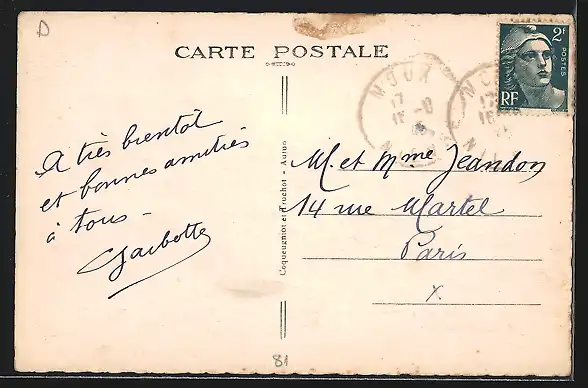 D
CARTE POSTALE
2F
POSTES
RF
MOUX
17
A très bientôt
et bonnes amitiés
à tous -
Coqueugniot et Truchot - Autun
M. et Mme Jeandon
14 rue Martel
Paris
x.
81